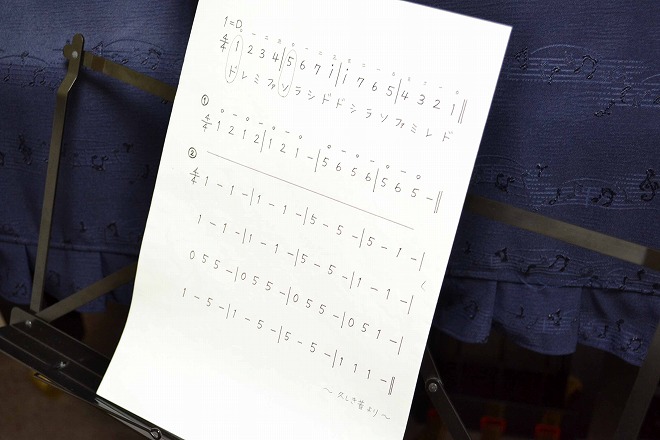 1=D
4/4 1 2 3 4 | 5 6 7 i | i 7 6 5 | 4 3 2 1 ‖
ド レ ミ ファ ソ ラ シ ド ド シ ラ ソ ファ ミ レ ド
①
4/4 1 2 1 2 | 1 2 1 − | 5 6 5 6 | 5 6 5 − ‖
②
4/4 1 − 1 − | 1 − 1 − | 5 − 5 − | 5 − 1 − |
1 − 1 − | 1 − 1 − | 5 − 5 − | 1 − 1 − |
0 5 5 − | 0 5 5 − | 0 5 5 − | 0 5 1 − |
1 − 5 − | 1 − 5 − | 5 − 5 − | 1 1 1 − ‖
〜久しき昔より〜